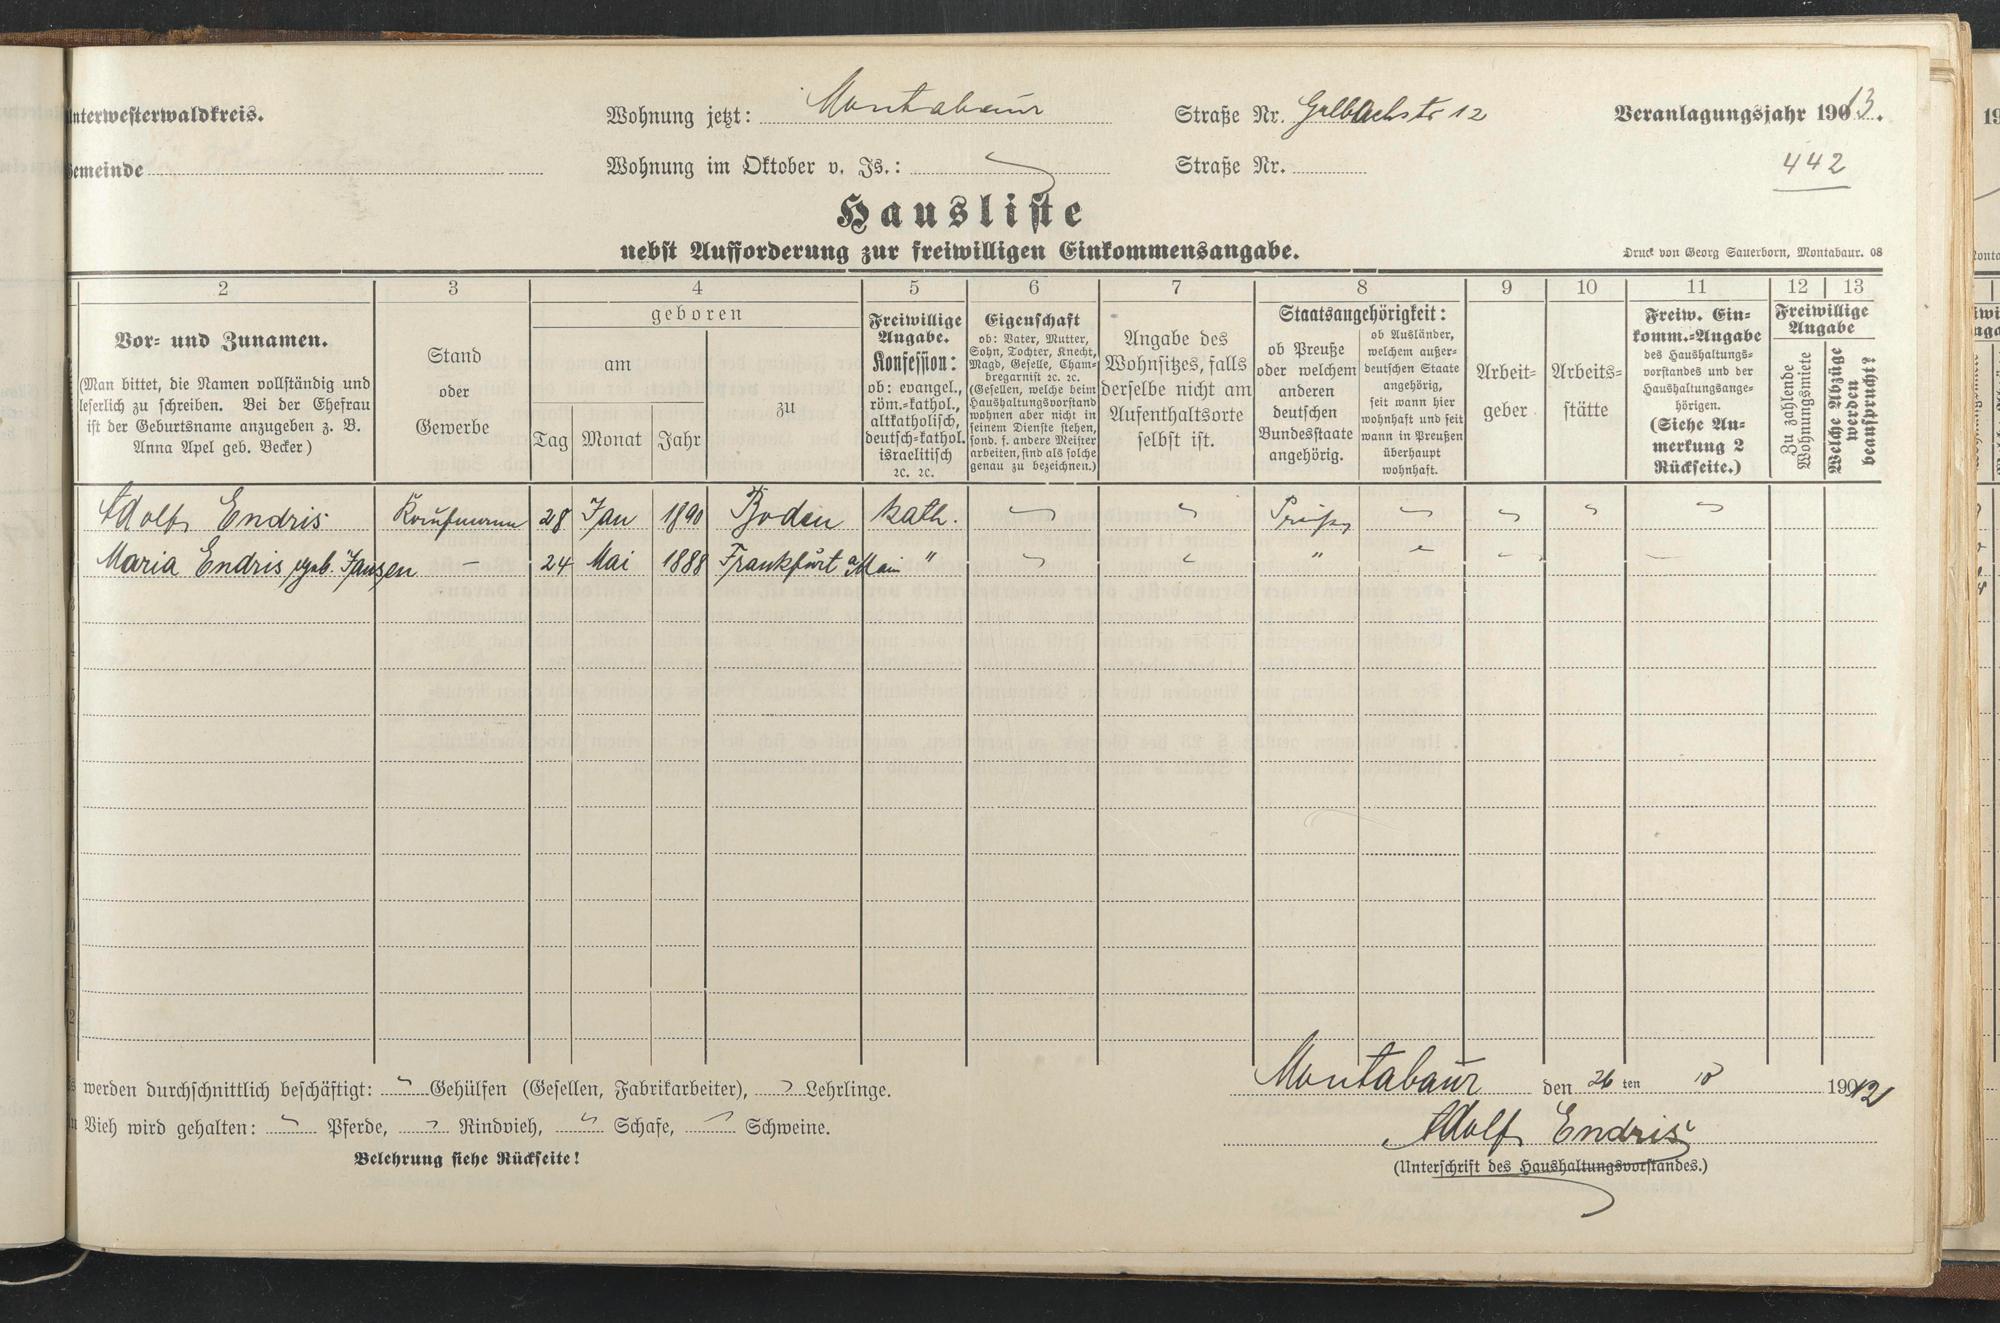 Unterwesterwaldkreis. Wohnung jetzt: Montabaur Straße Nr. Gelbachstr 12 Veranlagungsjahr 1913.
Gemeinde Wohnung im Oktober v. Js.: Straße Nr. 442
Hausliste
nebst Aufforderung zur freiwilligen Einkommensangabe.
Druck von Georg Sauerborn, Montabaur. 08
2 3 4 5 6 7 8 9 10 11 12 13
Vor- und Zunamen.
(Man bittet, die Namen vollständig und
leserlich zu schreiben. Bei der Ehefrau
ist der Geburtsname anzugeben z. B.
Anna Apel geb. Becker)
Stand
oder
Gewerbe
geboren
am
Tag Monat Jahr
zu
Freiwillige
Angabe.
Konfession:
ob: evangel.,
röm.-kathol.,
altkatholisch,
deutsch-kathol.
israelitisch
ec. ec.
Eigenschaft
ob: Vater, Mutter,
Sohn, Tochter, Knecht,
Magd, Geselle, Cham-
bregarnist ec. ec.
(Gesellen, welche beim
Haushaltungsvorstand
wohnen aber nicht in
seinem Dienste stehen,
sond. f. andere Meister
arbeiten, sind als solche
genau zu bezeichnen.)
Angabe des
Wohnsitzes, falls
derselbe nicht am
Aufenthaltsorte
selbst ist.
Staatsangehörigkeit:
ob Preuße
oder welchem
anderen
deutschen
Bundesstaate
angehörig.
ob Ausländer,
welchem außer-
deutschen Staate
angehörig,
seit wann hier
wohnhaft und seit
wann in Preußen
überhaupt
wohnhaft.
Arbeit-
geber
Arbeits-
stätte
Freiw. Ein-
komm.-Angabe
des Haushaltungs-
vorstandes und der
Haushaltungsange-
hörigen.
(Siehe An-
merkung 2
Rückseite.)
Freiwillige
Angabe
Zu zahlende
Wohnungsmiete
Welche Abzüge
werden
beansprucht?
Adolf Endris Kaufmann 28 Jan 1890 Boden kath. Preuße
Maria Endris geb. Jansen — 24 Mai 1888 Frankfurt a/Main " "
werden durchschnittlich beschäftigt: Gehülfen (Gesellen, Fabrikarbeiter), Lehrlinge.
Montabaur den 26 ten 10 1912
Vieh wird gehalten: Pferde, Rindvieh, Schafe, Schweine.
Adolf Endris
Belehrung siehe Rückseite!
(Unterschrift des Haushaltungsvorstandes.)